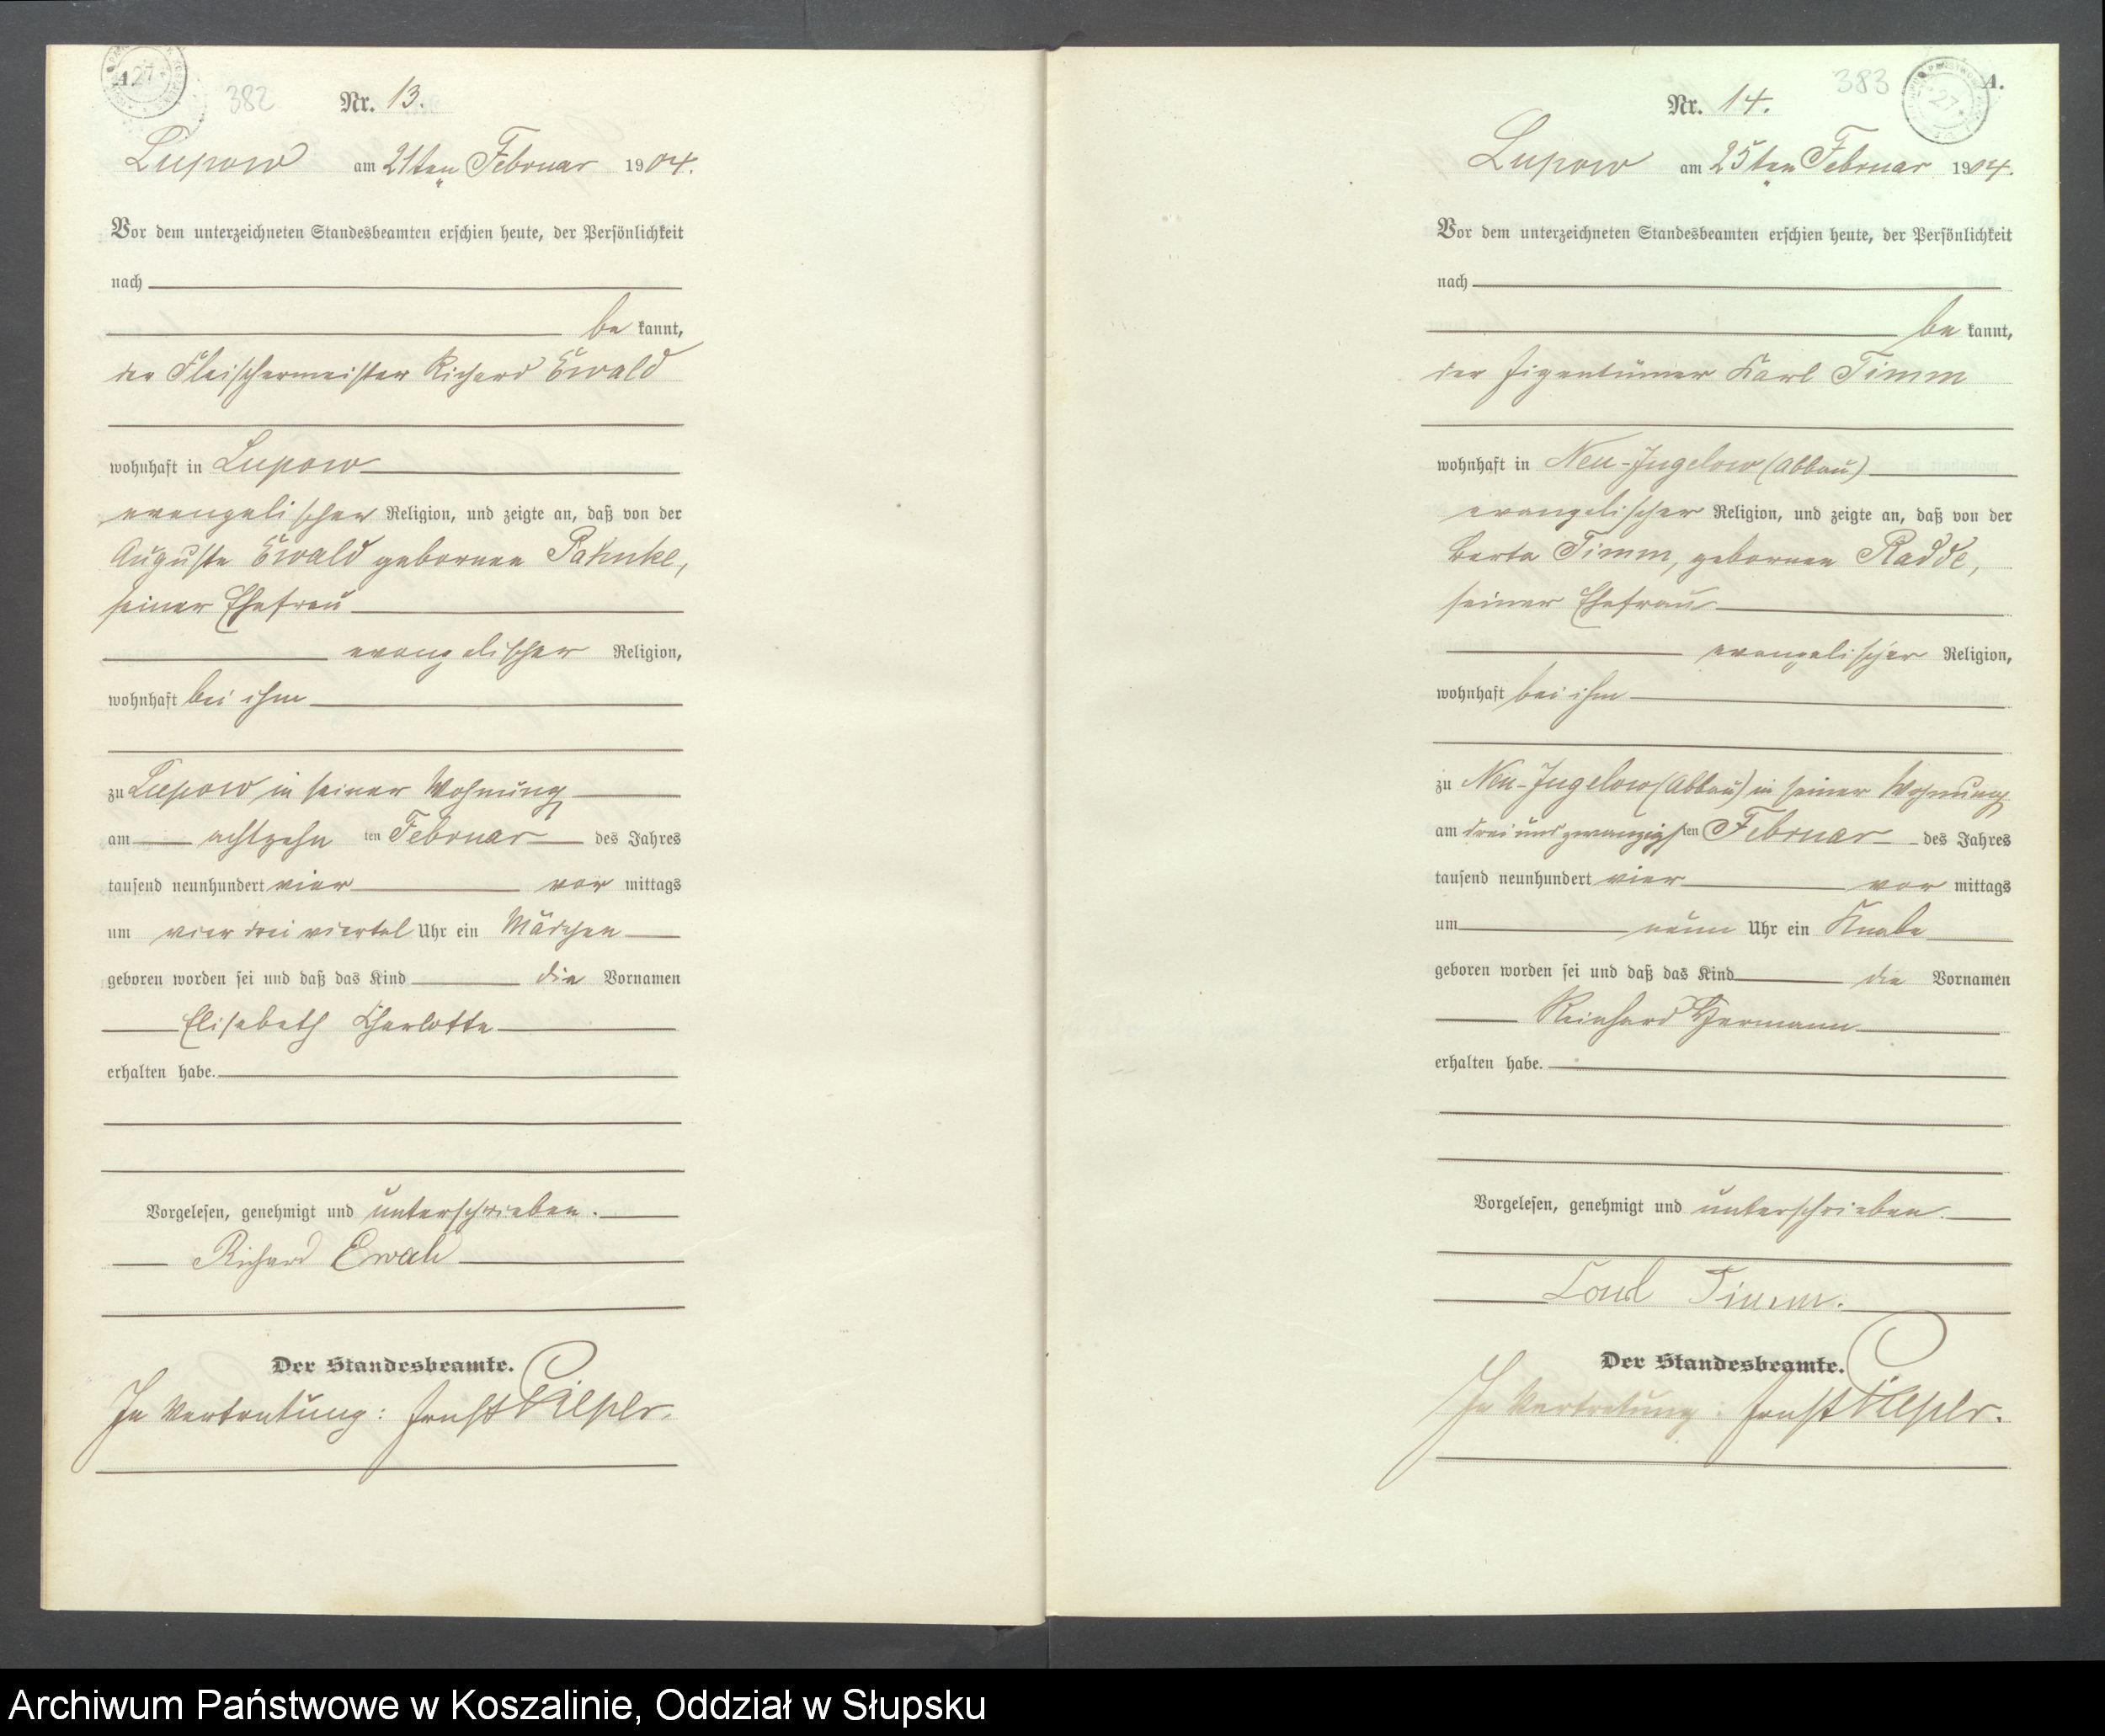 A.
382
Nr. 13.
Lupow am 21ten Februar 1904.
Vor dem unterzeichneten Standesbeamten erschien heute, der Persönlichkeit
nach
be kannt,
der Fleischermeister Richard Ewald
wohnhaft in Lupow
evangelischer Religion, und zeigte an, daß von der
Auguste Ewald gebornen Pahnke,
seiner Ehefrau
evangelischer Religion,
wohnhaft bei ihm
zu Lupow in seiner Wohnung
am achtzehn ten Februar des Jahres
tausend neunhundert vier vor mittags
um vier drei viertel Uhr ein Mädchen
geboren worden sei und daß das Kind die Vornamen
Elisabeth Charlotte
erhalten habe.
Vorgelesen, genehmigt und unterschrieben.
Richard Ewald
Der Standesbeamte.
In Vertretung: Ernst
383
A.
Nr. 14.
Lupow am 25ten Februar 1904.
Vor dem unterzeichneten Standesbeamten erschien heute, der Persönlichkeit
nach
be kannt,
der Eigentümer Karl Timm
wohnhaft in Neu-Jugelow (Abbau)
evangelischer Religion, und zeigte an, daß von der
Berta Timm, gebornen Radde,
seiner Ehefrau
evangelischer Religion,
wohnhaft bei ihm
zu Neu-Jugelow (Abbau) in seiner Wohnung
am drei und zwanzigsten Februar des Jahres
tausend neunhundert vier vor mittags
um neun Uhr ein Knabe
geboren worden sei und daß das Kind die Vornamen
Reinhard Hermann
erhalten habe.
Vorgelesen, genehmigt und unterschrieben.
Carl Timm.
Der Standesbeamte.
In Vertretung: Ernst
Archiwum Państwowe w Koszalinie, Oddział w Słupsku